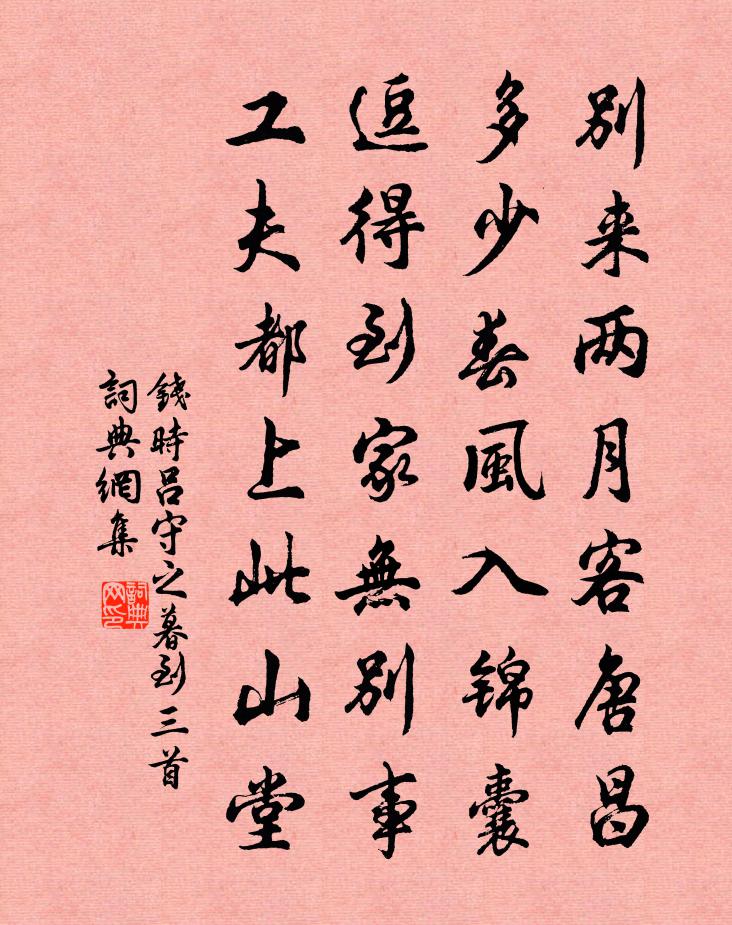 别来两月客唐昌
多少春風入锦囊
逗得到家無别事
工夫都上此山堂
錢時吕守之暮到三首
詞典網集
詞典
网印